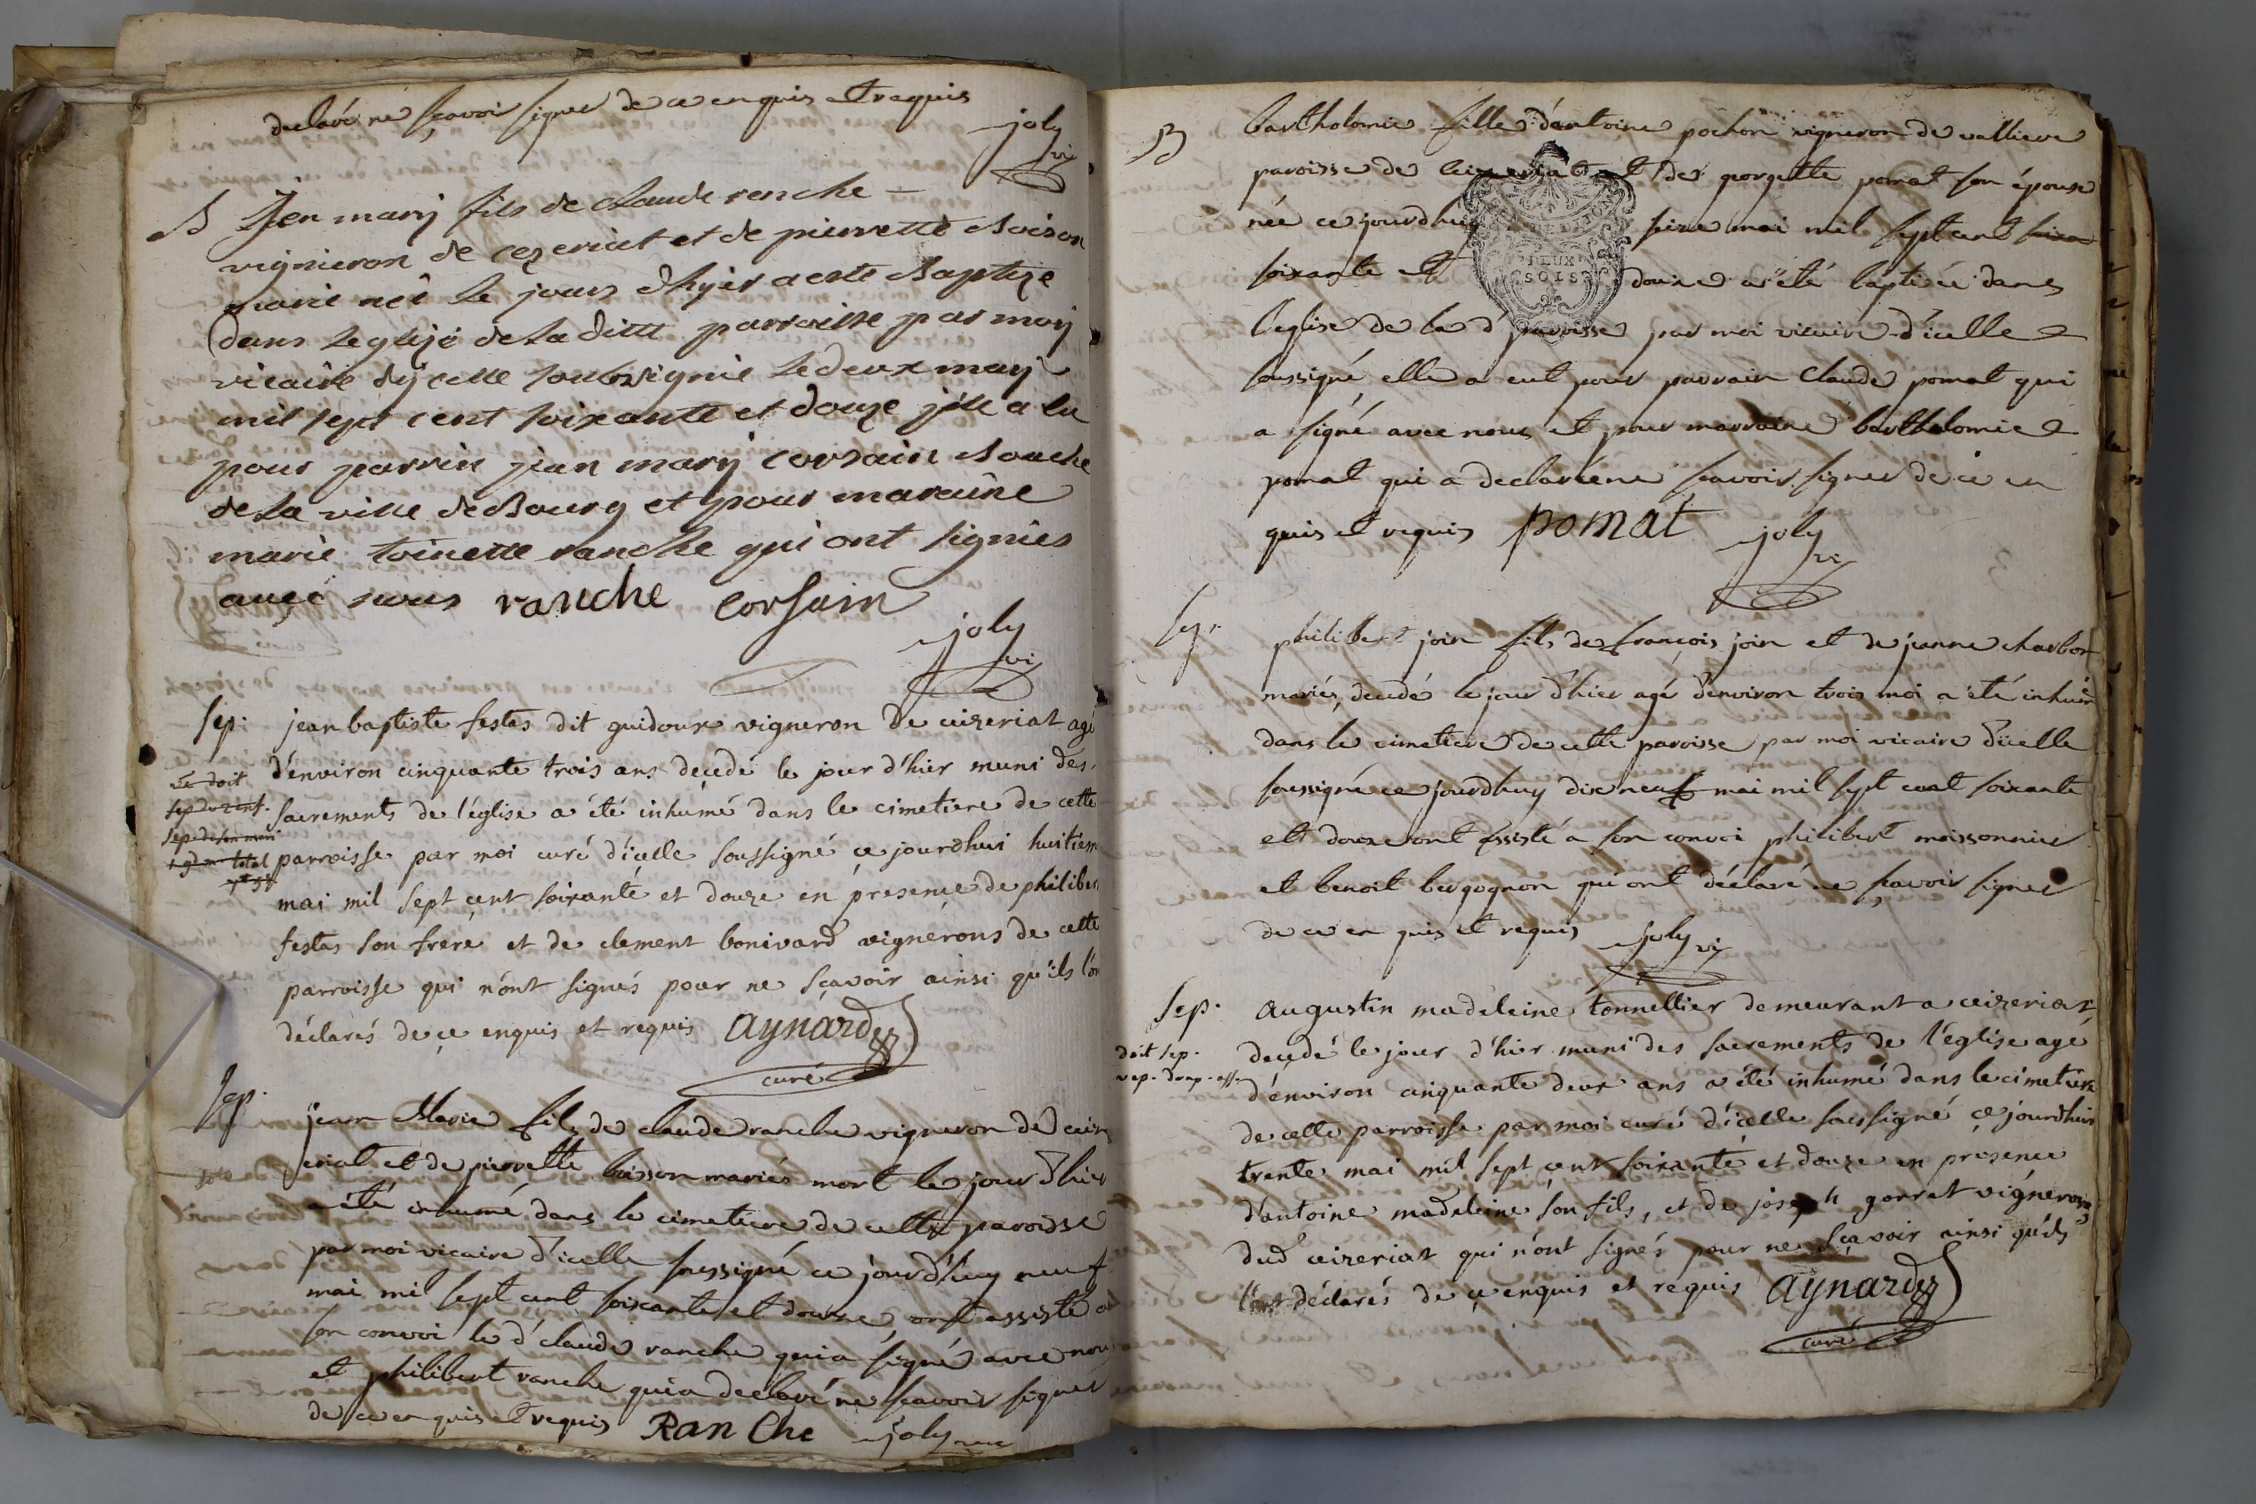 declaré ne sçavoir signer de ce enquis et requis
joly vi
B Jean marij fils de claude renche
vignieron de ceqeriat et de pierrette Boison
marié neê le jours d'hyier a esté Baptize
dans Leglize de La ditte parroisse par moy
vicaire dy celle soubsignié Le deux may
mil sept cent soixante et douze jlle a lu
pour parrin jean marij corsain Bouche
de La ville de Bourg et pour maraine
marie toinette ranche qui ont signiês
avec nous ranche Corsain
joly vi
Sep. jean baptiste festas dit guidoux vigneron de ceizeriat agé
d'environ cinquante trois ans decedé le jour d'hier muni des
sacrements de l'église a été inhumé dans le cimetiere de cette
parroisse par moi curé d'icelle soussigné ce jourdhui huitiem
mai mil sept cent soixante et douze en presence de philiber
festas son frere et de clement bonivard vignerons de cette
parroisse qui n'ont signés pour ne sçavoir ainsi qu'ils l'on
déclarés de ce enquis et requis Aynard
curé
Le doit
sep. de son mari
total
Sep. jean Marie fils de claude ranche vigneron de ceize
eriat et de pierrette buisson mariés mort le jour d'hier
a été inhumé dans le cimetiere de cette paroisse
par moi vicaire d'icelle soussigné ce jourd'huy neuf
mai mil sept cent soixante et douze ont assisté a
son convoi le d' claude ranche qui a signé avec nous
et philibert ranche qui a declaré ne scavoir signer
de ce en quis et requis RanChe joly vic
B bartholomie fille d'antoine pochon vigneron de vallieve
paroisse de ceizeriat et de georgette pomat son épouse
née ce jourdhuy seize mai mil sept cent soixan
soixante et douze a été baptisée dans
DEUX SOLS
l'eglise de la d' paroisse par moi vicaire d'icelle
soussigné, elle a eut pour parrain Claude pomat qui
a signé avec nous et pour marraine bartholomie
pomat qui a declarée ne scavoir signer de ce en
quis et requis pomat joly vi
Sep. philibert join fils de françois join et de jeanne charbon
mariés, decedé le jour d'hier agé d'environ trois moi a été inhumé
dans le cimetiere de cette paroisse par moi vicaire d'icelle
soussigné ce jourdhuy dix neuf mai mil sept cent soixante
et douze ont assisté a son convoi philibert moissonnier
et benoit burgognon qui ont déclaré ne scavoir signer
de ce en quis et requis joly vi
Sep. augustin madeleine tonnellier demeurant a ceizeriat
doit sep.
decedé le jour d'hier muni des sacrements de l'église agé
d'environ cinquante deux ans a été inhumé dans le cimetiere
de cette parroisse par moi curé d'icelle soussigné ce jourdhui
trente mai mil sept cent soixante et douze en presence
d'antoine madeleine son fils, et de joseph gorret vignerons
dud ceizeriat qui n'ont signés pour ne sçavoir ainsi qu'ils
l'ont déclarés de ce enquis et requis Aynard
curé